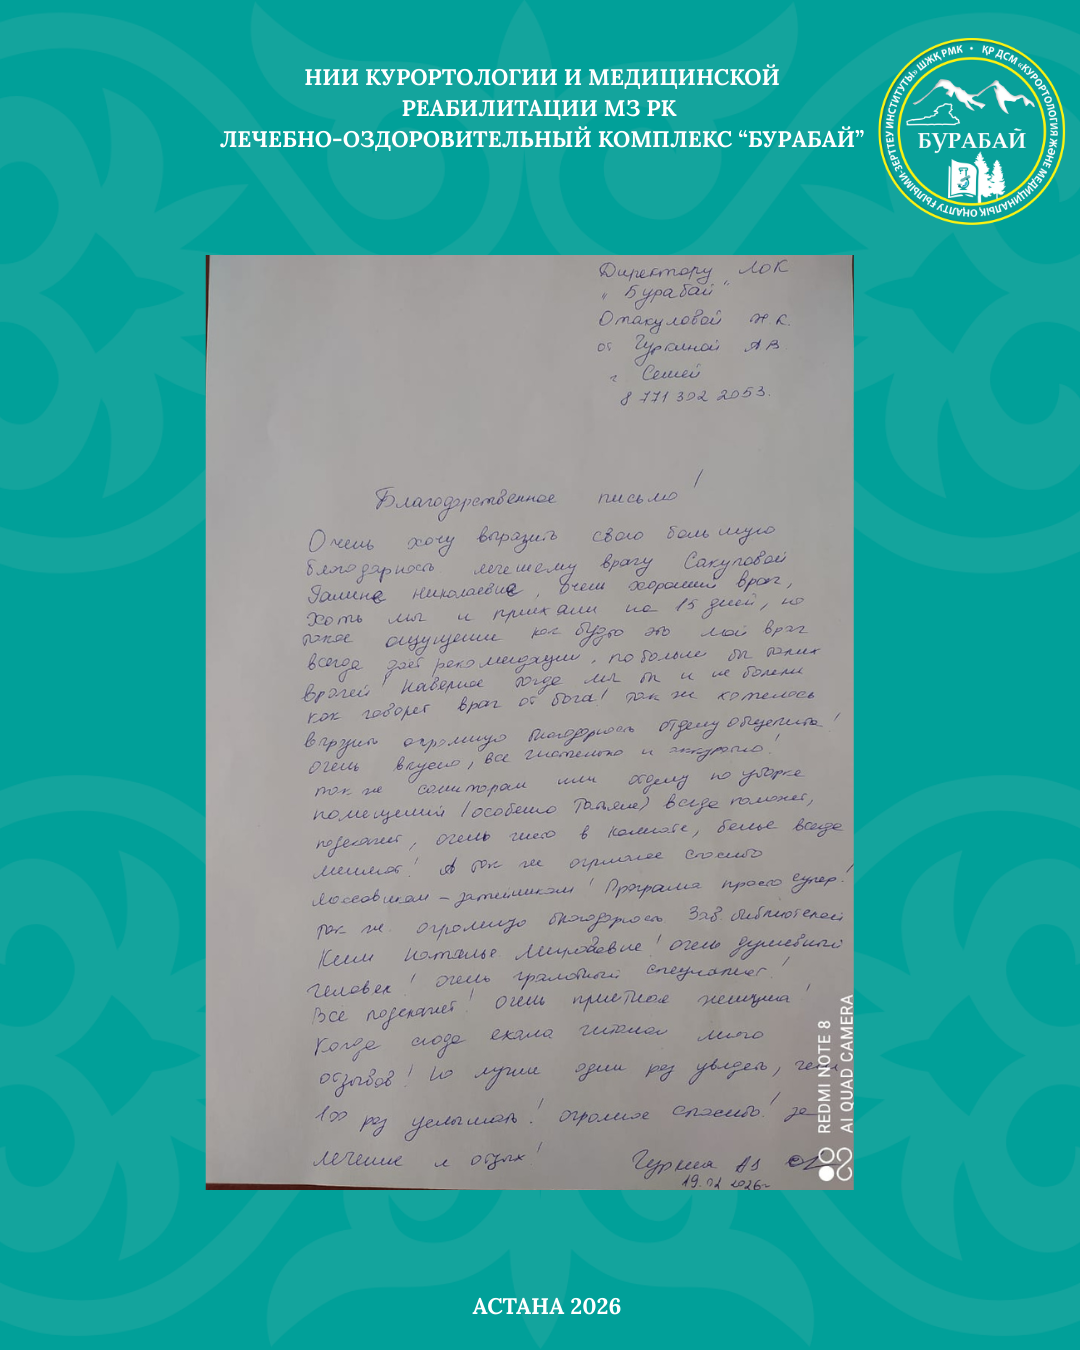 НИИ КУРОРТОЛОГИИ И МЕДИЦИНСКОЙ
РЕАБИЛИТАЦИИ МЗ РК
ЛЕЧЕБНО-ОЗДОРОВИТЕЛЬНЫЙ КОМПЛЕКС “БУРАБАЙ”
ҚР ДСМ «КУРОРТОЛОГИЯ ЖӘНЕ МЕДИЦИНАЛЫҚ ОҢАЛТУ ҒЫЛЫМИ-ЗЕРТТЕУ ИНСТИТУТЫ» ШЖҚ РМК •
БУРАБАЙ
Директору ЛОК
"Бурабай"
Отакуловой Ж.К.
от А.В
г. Семей
8 771 302 2053.
Благодарственное письмо!
Очень хочу выразить свою большую
благодарность врачу Сакуловой
Галине Николаевне, очень хороший врач,
Хоть мы и приехали на 15 дней, но
такое ощущение как будто это мой врач
всегда даёт рекомендации, побольше бы таких
врачей! Наверное тогда мы бы и не болели
как говорят врач от бога! так же хотелось
выразить огромную благодарность отделу общепита!
очень вкусно, все чистенько и аккуратно!
так же санитаркам или отделу по уборке
помещений (особенно Татьяне) всегда поможет,
подскажет, очень чисто в комнате, белье всегда
меняют! А так же огромное спасибо
массовикам - затейникам! Програма просто супер!
так же огромную благодарность Зав. библиотекой
Ким Наталье очень душевный
человек! очень грамотный специалист!
Все подскажет! Очень приятная женщина!
Когда сюда ехала читала много
отзывов! Но лучше один раз увидеть, чем
100 раз услышать! огромное спасибо! за
лечение и отдых!
19. 2026г
REDMI NOTE 8
AI QUAD CAMERA
АСТАНА 2026